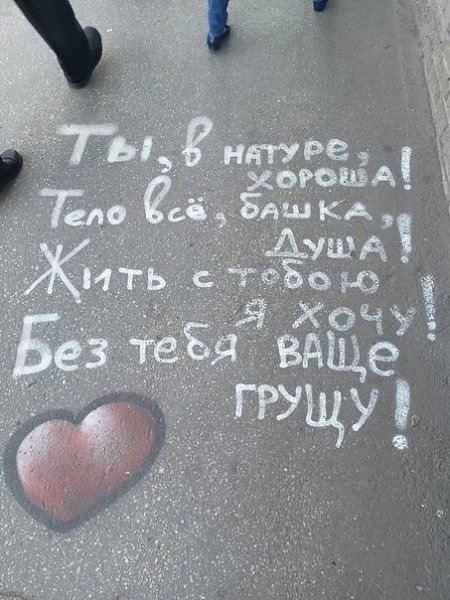 Ты, в натуре,
хороша!
Тело всё, башка,
Душа!
Жить с тобою
я хочу!
Без тебя ваще
грущу!